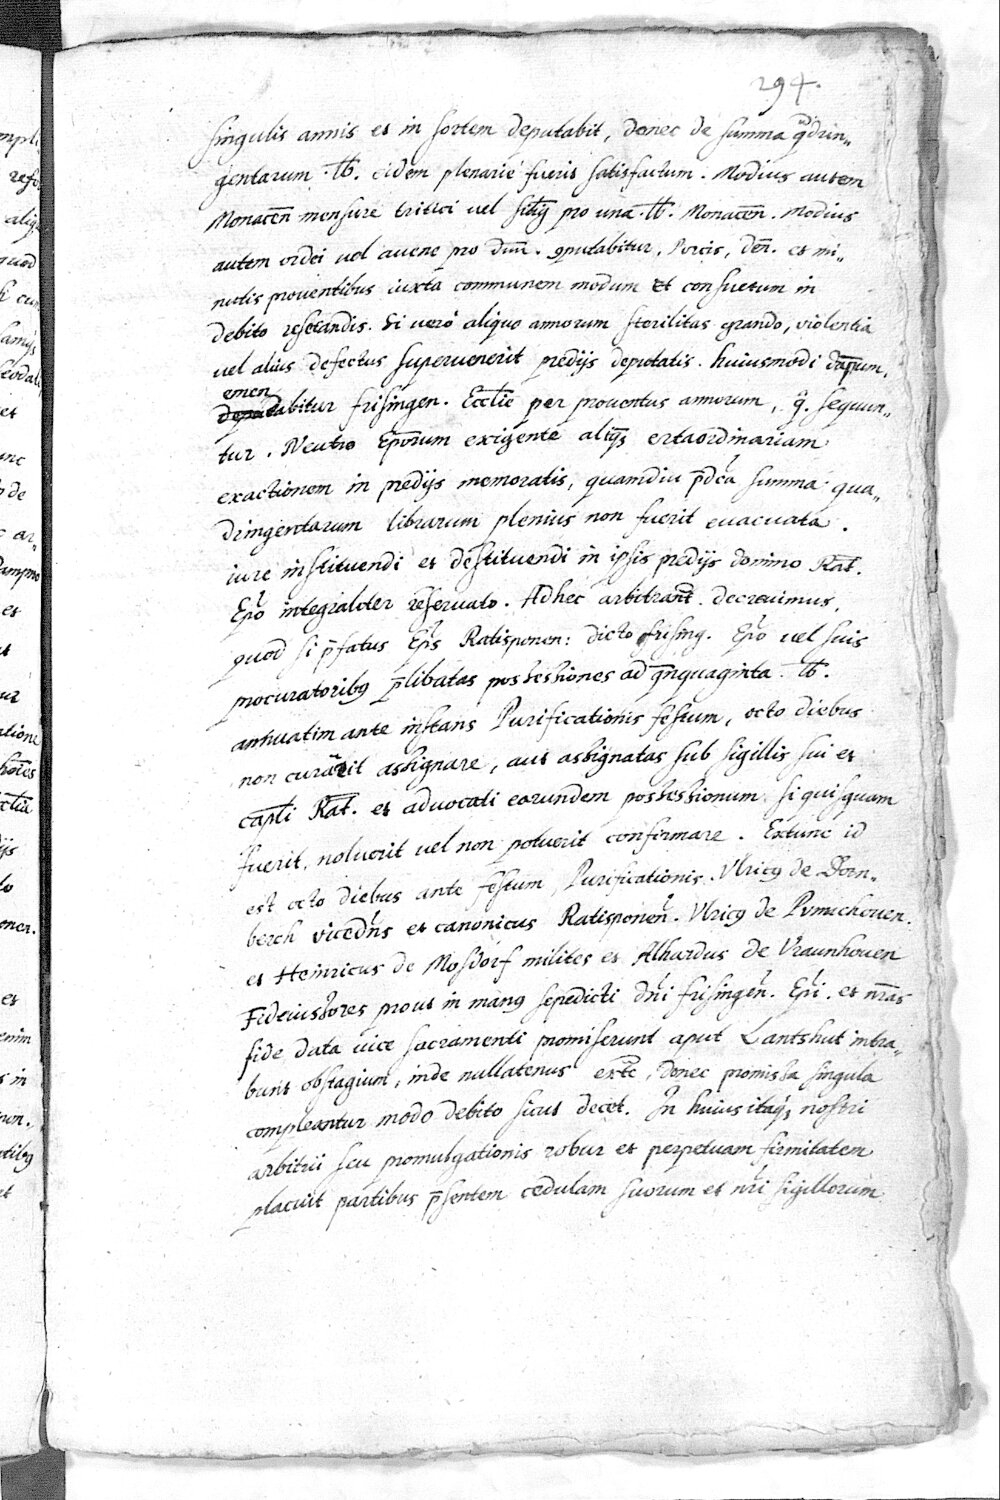 294.
singulis annis et in sortem deputabit, donec de summa qadrin„
gentarum . ℔. eidem plenarie fuerit satisfactum . Modius autem
Monacen̄ mensure tritici vel pro una . ℔. Monacen̄. Modius
autem ordei vel avene pro dim̄. 9putabitur, Porcis, den̄. et mi„
nutis proventibus iuxta communem modum et consuetum in
debito resecandis. Si vero aliquo annorum sterilitas grando, violentia
vel alius defectus supervenerit predijs deputatis. huiusmodi
emen
dabitur frisingen. Ecclie per proventus annorum, q̄. sequun„
tur. Neutro Ep̄orum exigente aliq̄3 extaordinariam
exactionem in predijs memoratis, quamdiu p̄dca summa qua„
dringentarum librarum plenius non fuerit evacuata .
iure instituendi et destituendi in ipsis predijs domino Rat̄.
Ep̄o integraliter reservato . Adhec decrevimus,
quod si p̄fatus Ep̄s Ratisponen: dicto frising. Ep̄o vel suis
procuratorib9 p̄libatas possessiones ad q̄nquaginta . ℔.
annuatim ante instans Purificationis festum, octo diebus
non curārit assignare, aut assignatas sub sigillis sui et
capl̄i Rat̄. et advocati earundem possessionum. si quisquam
fuerit, noluerit vel non potuerit confirmare . Extunc id
est octo diebus ante festum Purificationis. Vlric9 de Dorn„
berch viced̄ns et canonicus Ratisponen̄. Vlric9 de Pvmichoven.
et Heinricus de Mosdorf milites et Alhardus de Vraunhoven
Fideiussores prout in man9 sepedicti dn̄i frisingen̄. Ep̄i. et nr̄as
fide data vice sacramenti promiserunt aput Lantshut intra„
bunt obstagium, inde nullatenus donec promissa singula
compleantur modo debito sicut decet. In huius itaq̄3 nostri
arbitrii seu promulgationis robur et perpetuam firmitatem
placuit partibus p̄sentem cedulam suorum et nr̄i sigillorum